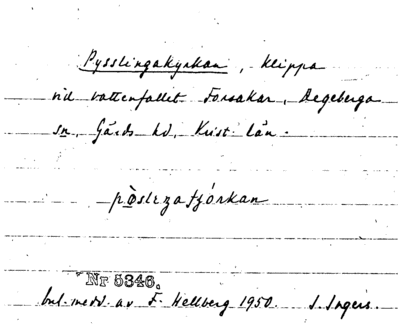 Pysslingakyrkan, klippa
vid vattenfallet Forsakar, Degeberga
sn, Gärds hd, Krist. län.
Nr 5346.
enl. medd. av F. Hellberg 1950. I. Ingers.